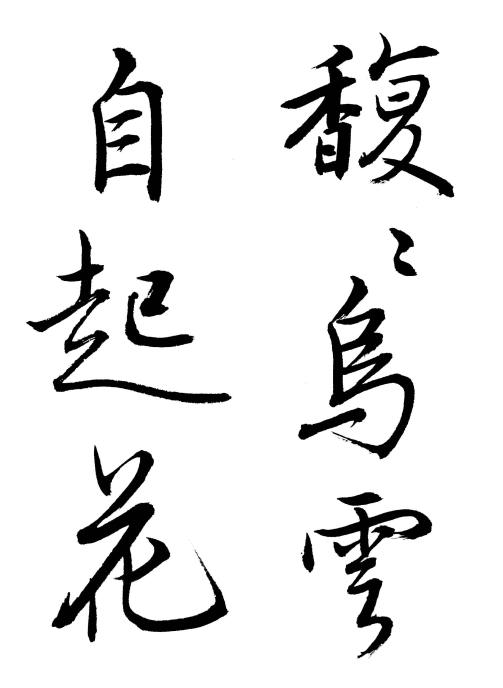 馥〻烏雲
自起花